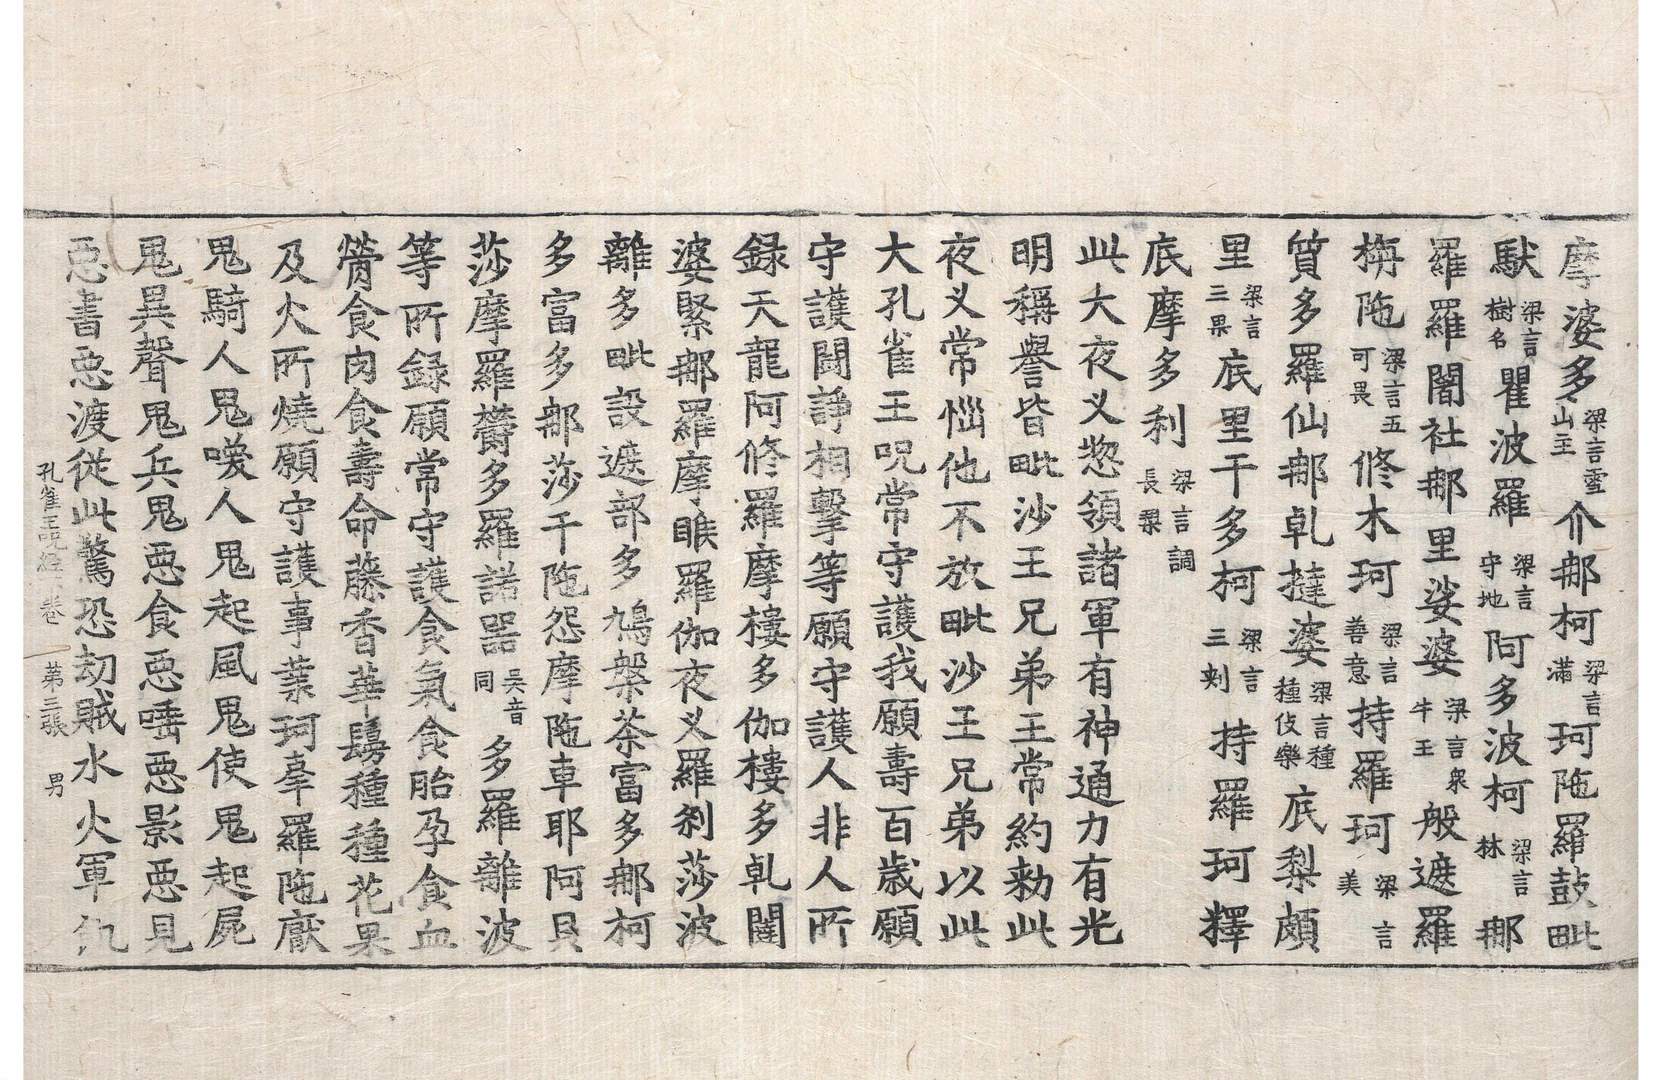 摩婆多梁言雪山王介那柯梁言滿珂陁羅鼓毗
馱梁言樹名瞿波羅梁言守地阿多波柯梁言林那
羅羅闍社那里娑婆梁言衆牛王般遮羅
栴陁梁言五可畏修木珂梁言善意持羅珂梁言美
質多羅仙那乹撻婆梁言種種伎樂底梨頗
里梁言三果底里干多柯梁言三刾持羅珂釋
底摩多利梁言調長㮚
此大夜叉惣領諸軍有神通力有光
明稱譽皆毗沙王兄弟王常約勑此
夜叉常惱他不放毗沙王兄弟以此
大孔雀王呪常守護我願壽百歲願
守護鬪諍相擊等願守護人非人所
錄天龍阿修羅摩樓多伽樓多乹闥
婆緊那羅摩睺羅伽夜叉羅刹莎波
離多毗設遮部多鳩槃茶富多那柯
多富多那莎干陁怨摩陁車耶阿貝
莎摩羅欝多羅諾噐吳音同多羅離波
等所錄願常守護食氣食胎孕食血
膋食肉食壽命藤香華鬘種種花果
及火所燒願守護事業珂㚖羅陁厭
鬼騎人鬼噯人鬼起風鬼使鬼起屍
鬼異聲鬼兵鬼惡食惡唾惡影惡見
惡書惡渡從此驚恐劫賊水火軍飢
孔雀王呪經卷 第三張 男